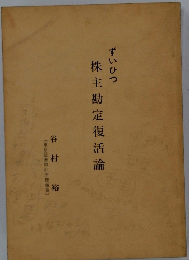 ずいひつ
株主勘定復活論
谷村裕